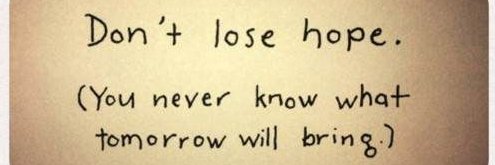 Don't lose hope.
(You never know what
tomorrow will bring.)